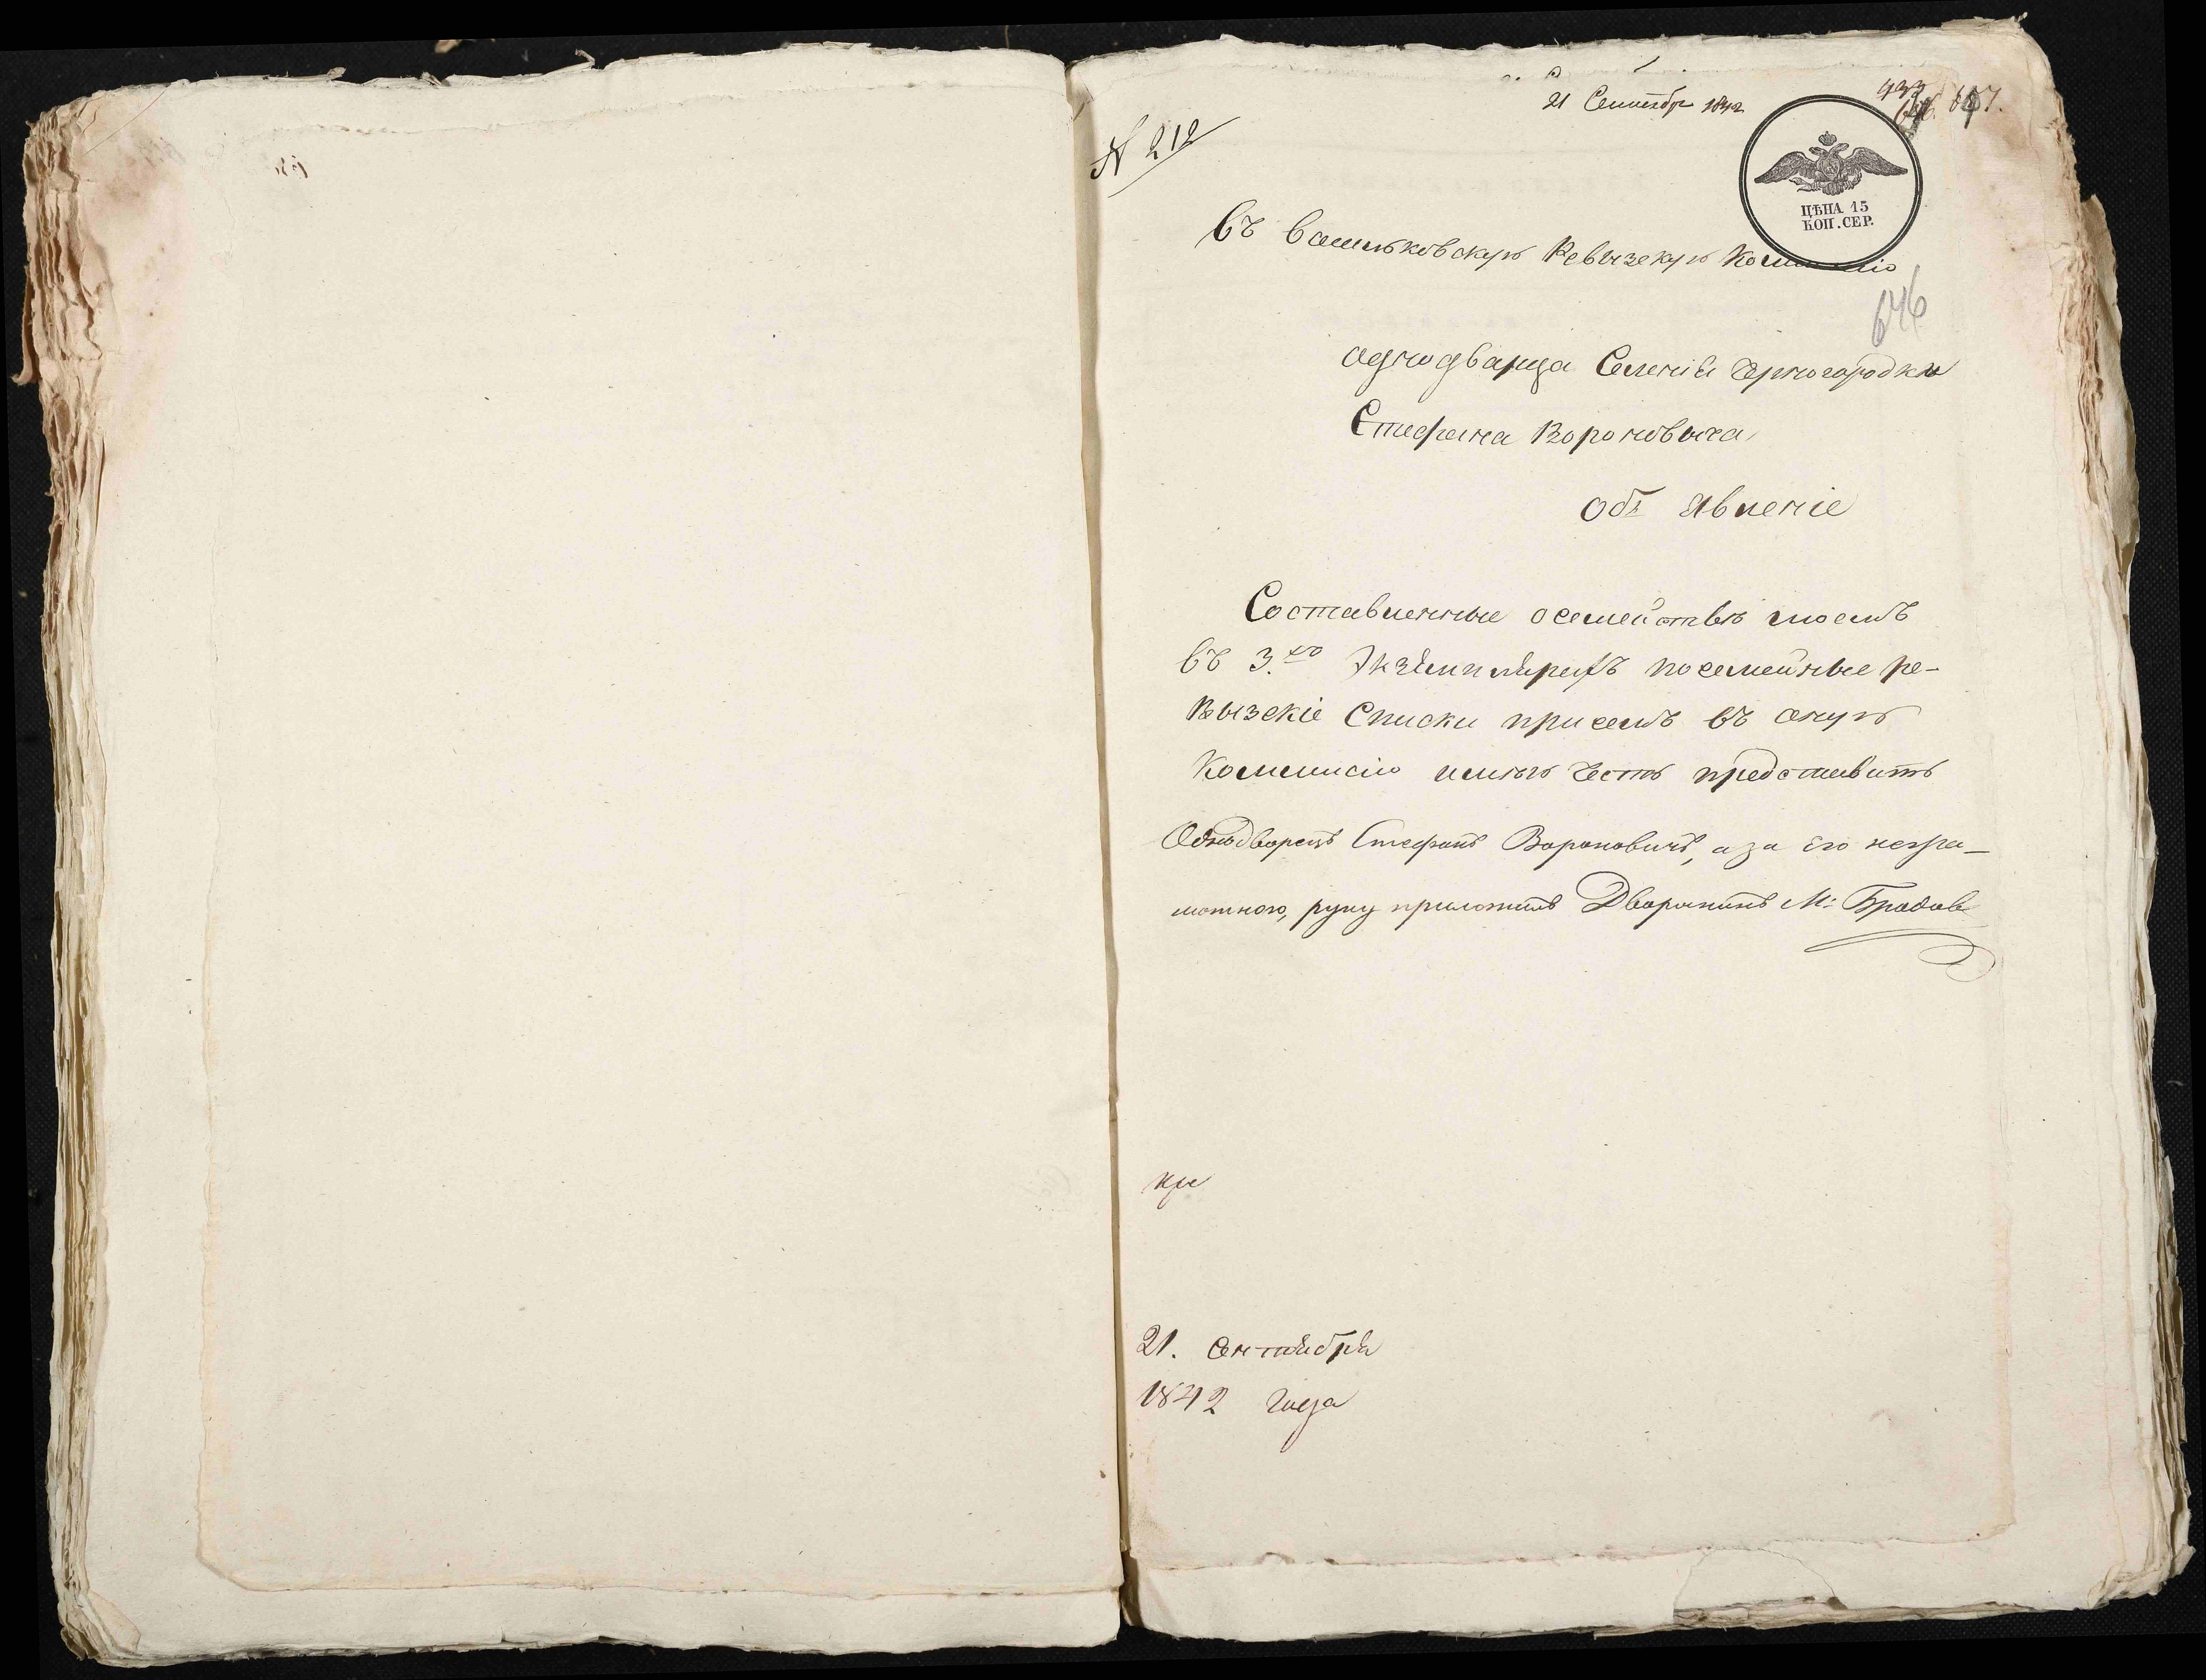 21 Сентября 1842
433
657.
№ 212
ЦѢНА 15
КОП. СЕР.
Въ Васильковскую Ревызскую Коммисію
646
одгнодварца Селенія Черногородки
Стефана Вороновыча
Объ Явленіе
Составленные осемействѣ моемъ
въ 3.хъ Экзѣмплярахъ посемейные ре-
вызскіе Списки присемъ въ оную
Коммисію имѣю честь представить
Однодворецъ Стефанъ Вороновичъ, а за его негра-
мотного, руку приложилъ Дворянинъ М:
кре
21. Сентября
1842 года